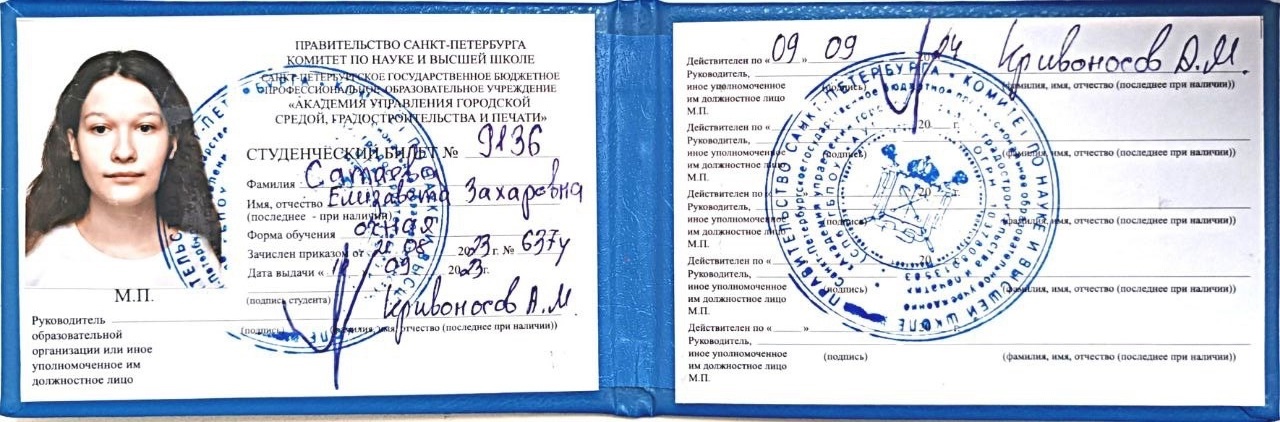 ПРАВИТЕЛЬСТВО САНКТ-ПЕТЕРБУРГА
КОМИТЕТ ПО НАУКЕ И ВЫСШЕЙ ШКОЛЕ
САНКТ-ПЕТЕРБУРГСКОЕ ГОСУДАРСТВЕННОЕ БЮДЖЕТНОЕ
ПРОФЕССИОНАЛЬНОЕ ОБРАЗОВАТЕЛЬНОЕ УЧРЕЖДЕНИЕ
«АКАДЕМИЯ УПРАВЛЕНИЯ ГОРОДСКОЙ
СРЕДОЙ, ГРАДОСТРОИТЕЛЬСТВА И ПЕЧАТИ»
СТУДЕНЧЕСКИЙ БИЛЕТ № 9136
Фамилия
Имя, отчество Елизавета Захаровна
(последнее - при наличии)
Форма обучения очная
Зачислен приказом от 21.08 2023 г. № 637у
Дата выдачи « 1 09 2023 г.
(подпись студента)
Кривоносов А.М.
(подпись) (фамилия, имя, отчество (последнее при наличии))
М.П.
Руководитель
образовательной
организации или иное
уполномоченное им
должностное лицо
Действителен по «09» 09 2024
Руководитель, Кривоносов А.М.
иное уполномоченное (подпись) (фамилия, имя, отчество (последнее при наличии))
им должностное лицо
М.П.
Действителен по « 20 г.
Руководитель,
иное уполномоченное (подпись) (фамилия, имя, отчество (последнее при наличии))
им должностное лицо
М.П.
Действителен по « 20
Руководитель,
иное уполномоченное (подпись) (фамилия, имя, отчество (последнее при наличии))
им должностное лицо
М.П.
Действителен по « 20
Руководитель,
иное уполномоченное (подпись) (фамилия, имя, отчество (последнее при наличии))
им должностное лицо
М.П.
Действителен по « » 20 г.
Руководитель,
иное уполномоченное (подпись) (фамилия, имя, отчество (последнее при наличии))
им должностное лицо
М.П.
ПРАВИТЕЛЬСТВО САНКТ-ПЕТЕРБУРГА • КОМИТЕТ ПО НАУКЕ И ВЫСШЕЙ ШКОЛЕ